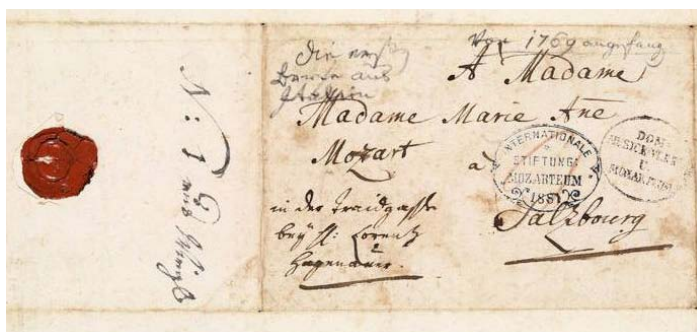 Die ersten
Briefe aus
Italien
Von 1769 angefang
A Madame
Madame Marie Ane
Mozart
a
Salzbourg
in der Traidgasse
bey H: Lorentz
Hagenauer.
INTERNATIONALE
STIFTUNG:
MOZARTEUM
1881
DOM
MUSIK VEREIN
U.
MOZARTEUM
N: 1
aus